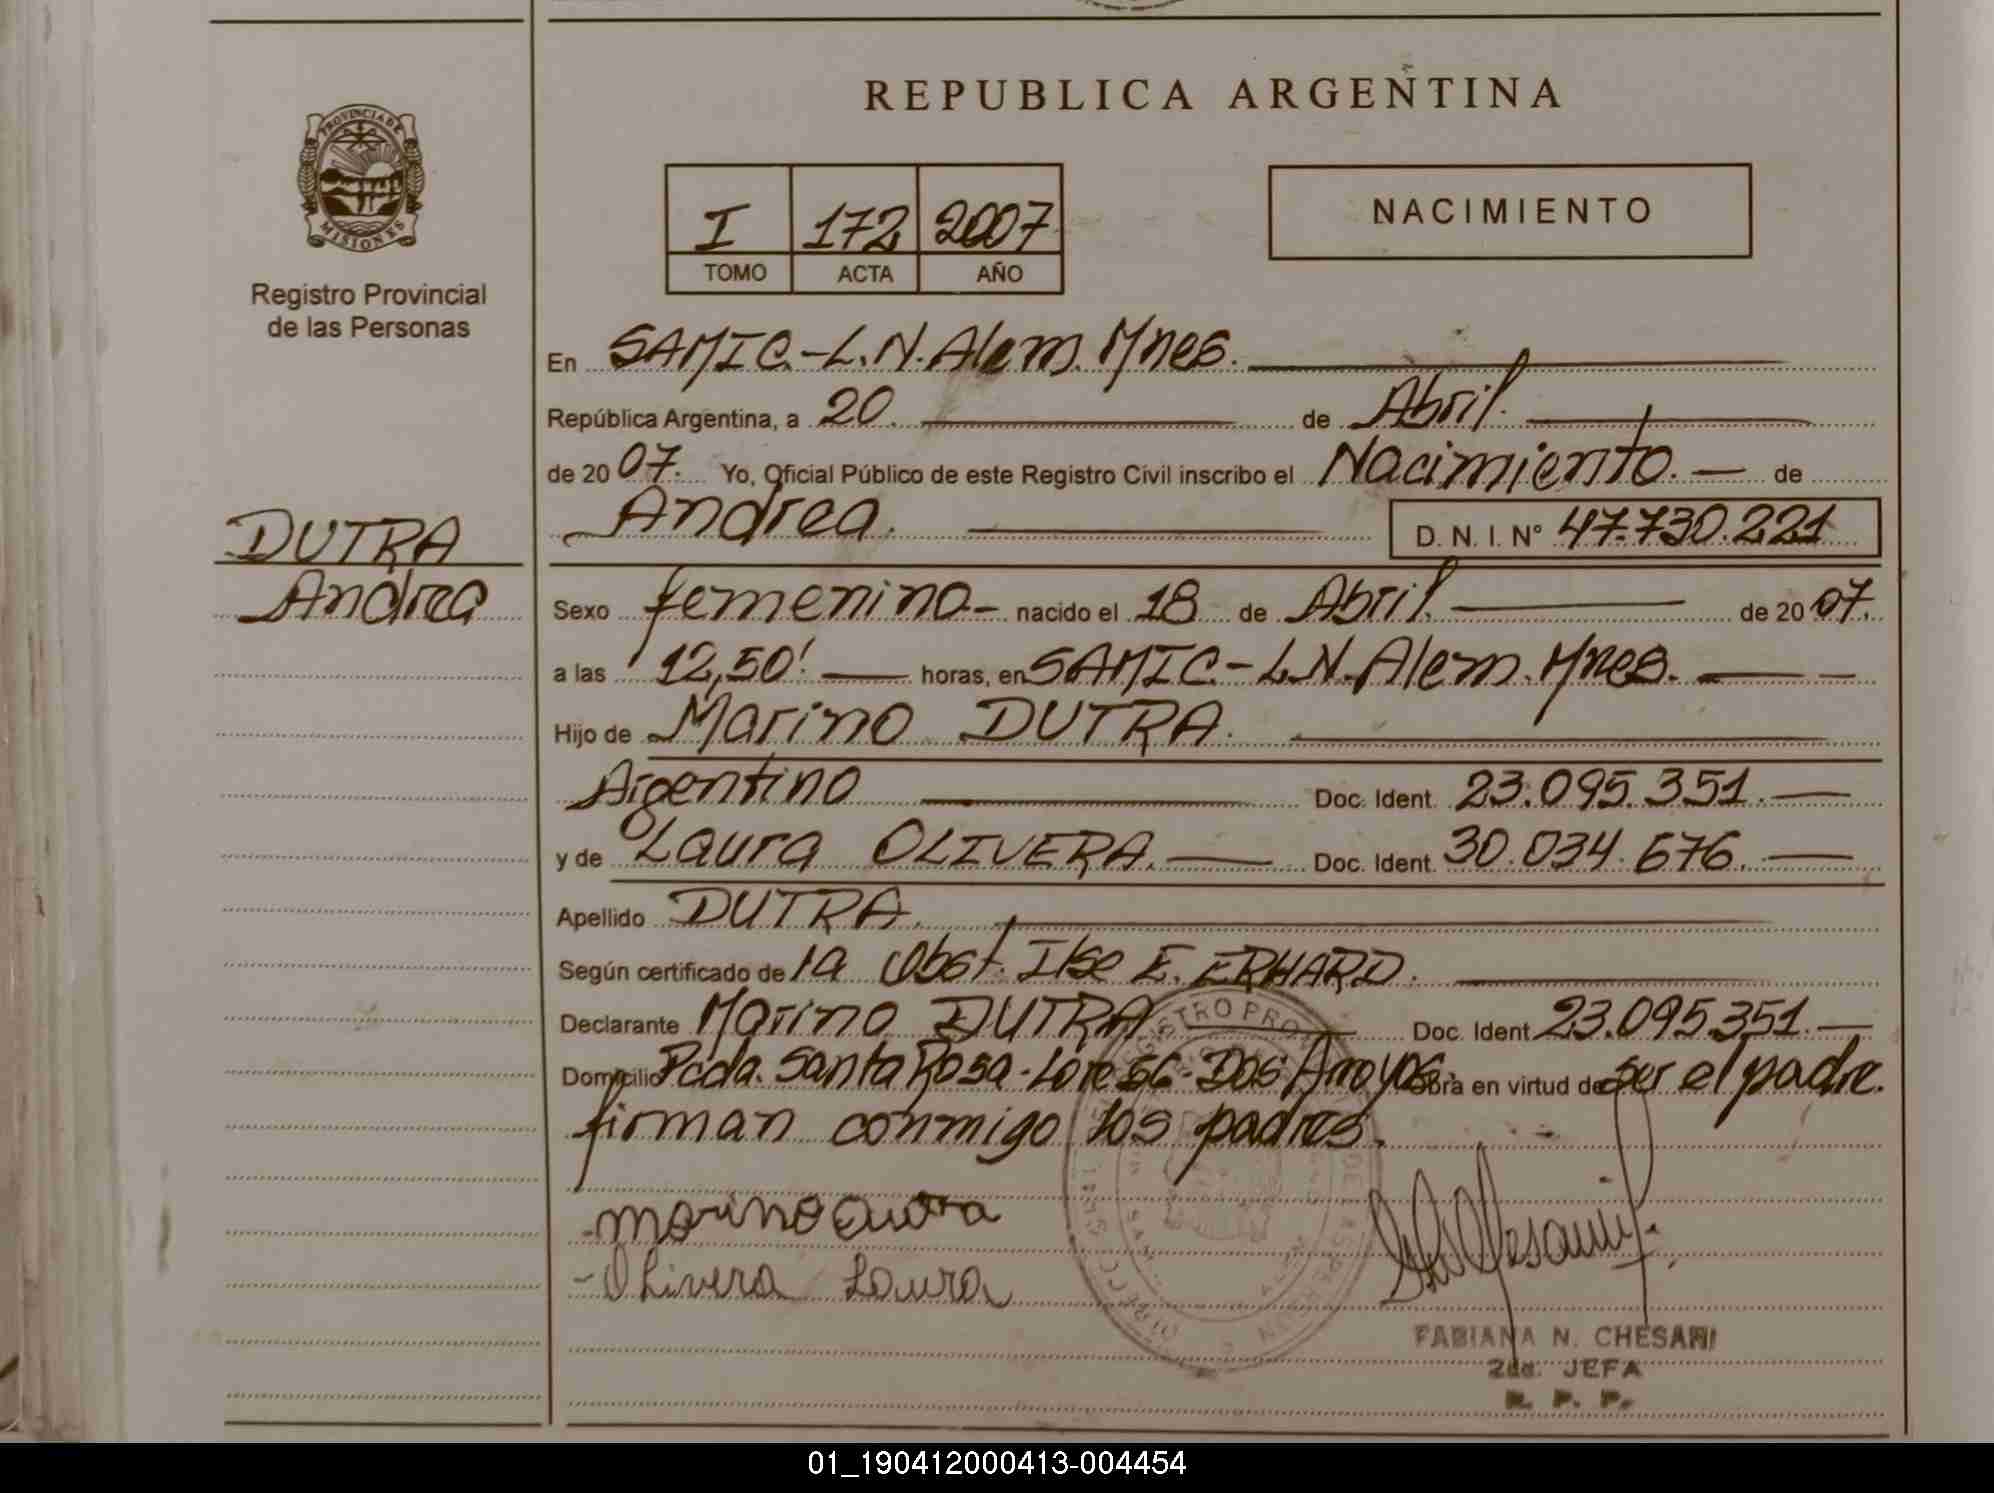 REPUBLICA ARGENTINA
PROVINCIA DE
MISIONES
Registro Provincial
de las Personas
I 172 2007
TOMO ACTA AÑO
NACIMIENTO
En SAMIC.-L.N.Alem. Mnes.
República Argentina, a 20. de Abril.
de 2007. Yo, Oficial Público de este Registro Civil inscribo el Nacimiento. — de
Andrea. D. N. I. Nº 47.730.221
DUTRA
Andrea
Sexo femenino.- nacido el 18 de Abril. de 2007.
a las 12,50' horas, en SAMIC.-L.N.Alem. Mnes.
Hijo de Marino DUTRA.
Argentino Doc. Ident. 23.095.351.
y de Laura OLIVERA. Doc. Ident. 30.034.676.
Apellido DUTRA.
Según certificado de la Obst. Ilse E. ERHARD.
Declarante Marino DUTRA Doc. Ident 23.095.351.
Domicilio Pcda. Santa Rosa-Lote 56-Dos Arroyos. Obra en virtud de ser el padre.
firman conmigo los padres.
-marino dutra
-Olivera Laura
FABIANA N. CHESANI
2da. JEFA
R. P. P.
01_190412000413-004454